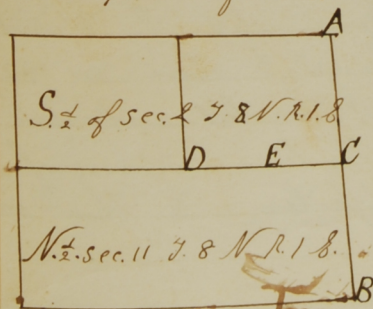 A
S. 1/2 of sec. 2 T. 8 N. R. 1. E
D E C
N. 1/2. sec. 11 T. 8 N R. 1 E.
B